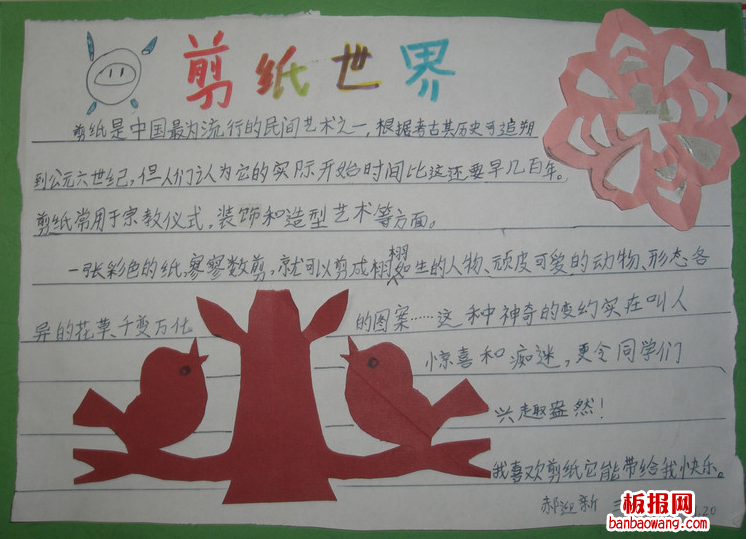 剪纸世界
剪纸是中国最为流行的民间艺术之一，根据考古其历史可追朔
到公元六世纪，但人们认为它的实际开始时间比这还要早几百年。
剪纸常用于宗教仪式，装饰和造型艺术等方面。
一张彩色的纸，寥寥数剪，就可以剪成栩栩如生的人物、顽皮可爱的动物、形态各
异的花草、千变万化的图案……这种神奇的变幻实在叫人
惊喜和痴迷，更令同学们
兴趣盎然！
我喜欢剪纸它能带给我快乐。
郝迎新 20
板报网
banbaowang.com